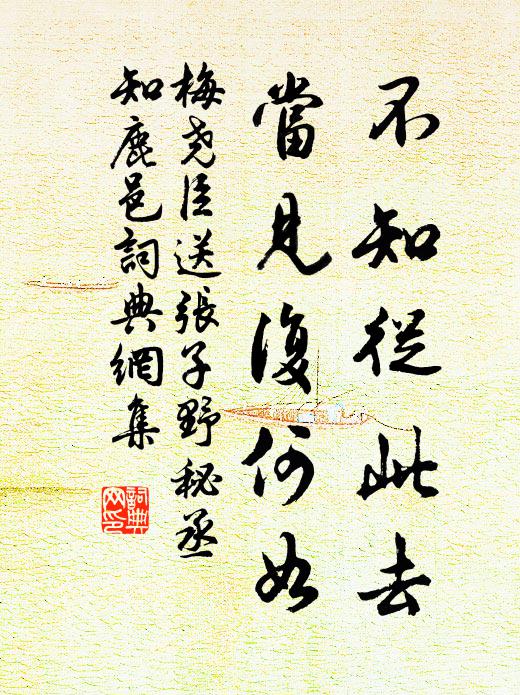 不知從此去
當見復何如
梅尧臣送張子野秘丞
知鹿邑詞典網集
詞典
网印